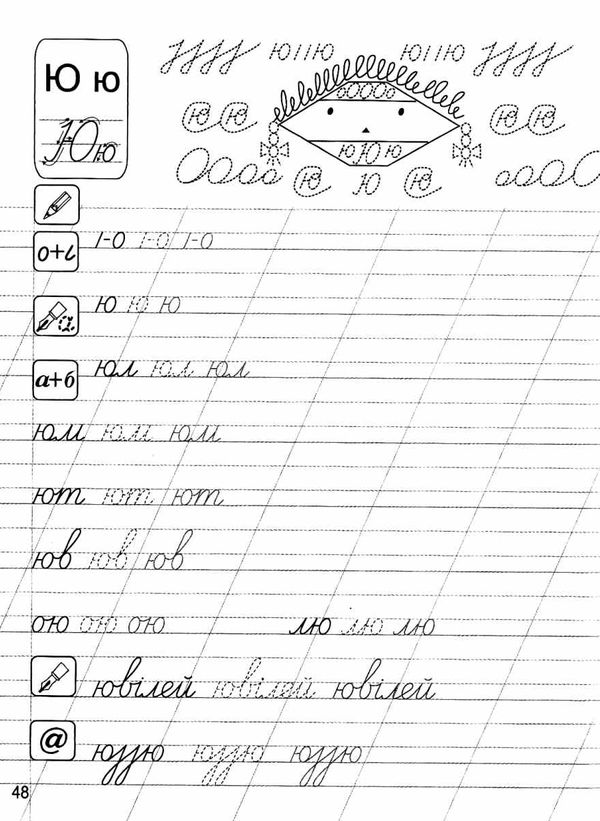 Ю ю
Юю
Ю ю
ю ю
ю Ю ю
ю Ю ю
о+ι
а+б
ю ю ю
юл юл юл
юм юм юм
ют ют ют
юв юв юв
ою ою ою лю лю лю
ювілей ювілей ювілей
@
48